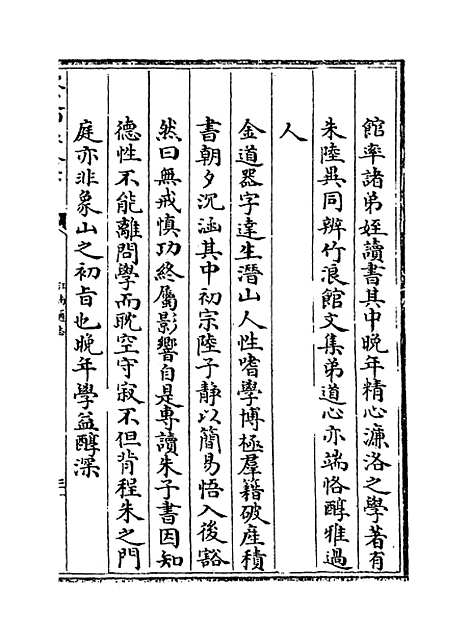 館率諸弟姪讀書其中晚年精心濂洛之學著有
朱陸異同辨竹浪館文集弟道心亦端恪醇雅過
人
金道器字達生潛山人性嗜學博極羣籍破產積
書朝夕沉涵其中初宗陸子靜以簡易悟入後豁
然曰無戒慎功終屬影響自是專讀朱子書因知
德性不能離問學而耽空守寂不但背程朱之門
庭亦非象山之初旨也晚年學益醇深
江南通志